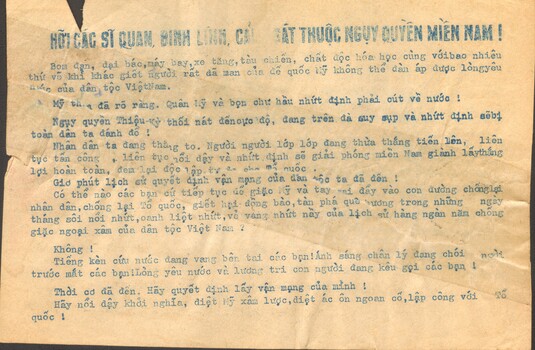 HỠI CÁC SĨ QUAN, BINH LÍNH, CẢNH SÁT THUỘC NGỤY QUYỀN MIỀN NAM !
Bom đạn, đại bác, máy bay, xe tăng, tàu chiến, chất độc hóa học cùng với bao nhiêu
thứ vũ khí khác giết người rất dã man của đế quốc Mỹ không thể đàn áp được lòng yêu
nước của dân tộc Việt Nam.
Mỹ thua đã rõ ràng. Quân Mỹ và bọn chư hầu nhứt định phải cút về nước !
Ngụy quyền Thiệu-Kỳ thối nát đến cực độ, đang trên đà suy sụp và nhứt định sẽ bị
toàn dân ta đánh đổ !
Nhân dân ta đang thắng to. Người người lớp lớp đang thừa thắng tiến lên, liên
tục tấn công, liên tục nổi dậy và nhứt định sẽ giải phóng miền Nam giành lấy thắng
lợi hoàn toàn, đem lại độc lập, tự do cho Tổ quốc.
Giờ phút lịch sử quyết định vận mạng của dân tộc ta đã đến !
Có thể nào các bạn cứ tiếp tục để giặc Mỹ và tay sai đẩy vào con đường chống lại
nhân dân, chống lại Tổ quốc, giết hại đồng bào, tàn phá quê hương trong những ngày
tháng sôi nổi nhứt, oanh liệt nhứt, và vẻ vang nhứt này của lịch sử hàng ngàn năm chống
giặc ngoại xâm của dân tộc Việt Nam ?
Không !
Tiếng kèn cứu nước đang vang bên tai các bạn ! Ánh sáng chân lý đang chói ngời
trước mắt các bạn ! Lòng yêu nước và lương tri con người đang kêu gọi các bạn !
Thời cơ đã đến. Hãy quyết định lấy vận mạng của mình !
Hãy nổi dậy khởi nghĩa, diệt Mỹ xâm lược, diệt ác ôn ngoan cố, lập công với Tổ
quốc !